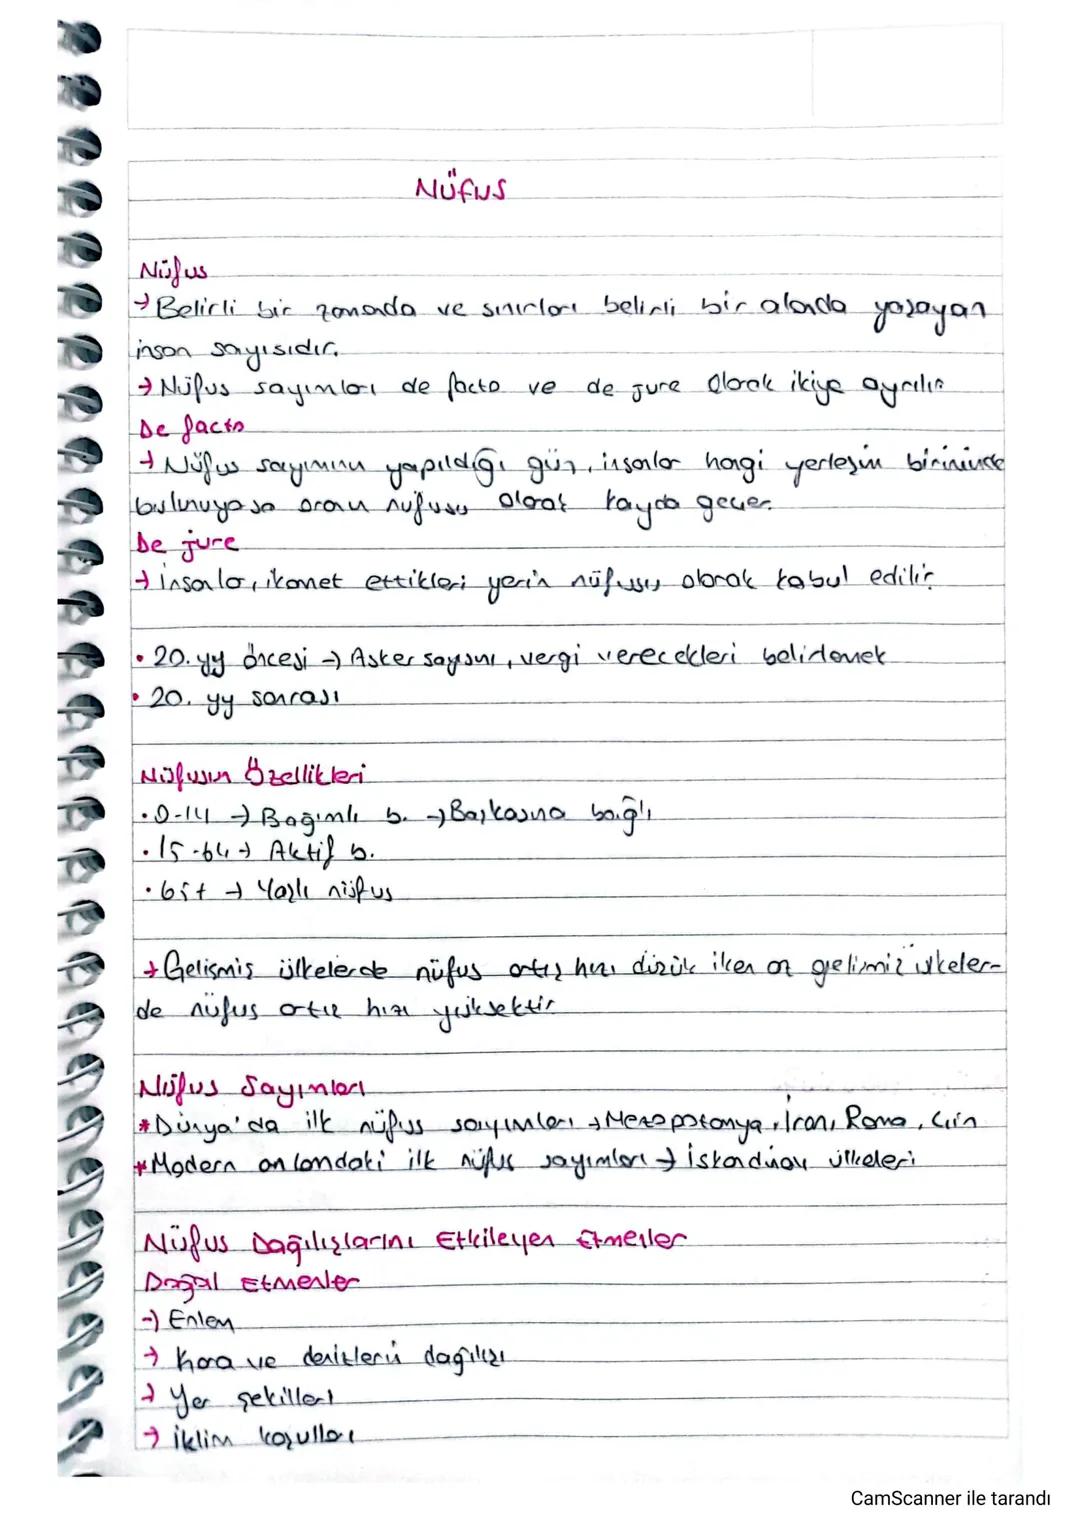 Nüfus
Nüfus
→ Belirli bir zamanda ve sınırları belirli bir alanda yaşayan
insan sayısıdır.
→ Nüfus sayımları de facto ve de jure olarak ikiye ayrılır
De facto
→ Nüfus sayımının yapıldığı gün, insanlar hangi yerleşim biriminde
bulunuyosa oranın nüfusu olarak kayda geçer.
De jure
→ insanlar, ikamet ettikleri yerin nüfusu olarak kabul edilir.
• 20. yy öncesi → Asker sayısını, vergi verecekleri belirlemek
• 20. yy sonrası
Nüfusun Özellikleri
• 0-14 → Bağımlı b. → Başkasına bağlı
• 15-64 → Aktif b.
• 65+ → Yaşlı nüfus
→ Gelişmiş ülkelerde nüfus artış hızı düşük iken az gelişmiş ülkeler-
de nüfus artış hızı yüksektir
Nüfus Sayımları
* Dünya'da ilk nüfus sayımları → Mezopotamya, İran, Roma, Çin
* Modern anlamdaki ilk nüfus sayımları → İskandinav ülkeleri
Nüfus Dağılışlarını Etkileyen Etmenler
Doğal Etmenler
→ Enlem
→ Kara ve denizlerin dağılışı
→ Yer şekilleri
→ İklim koşulları
CamScanner ile tarandı